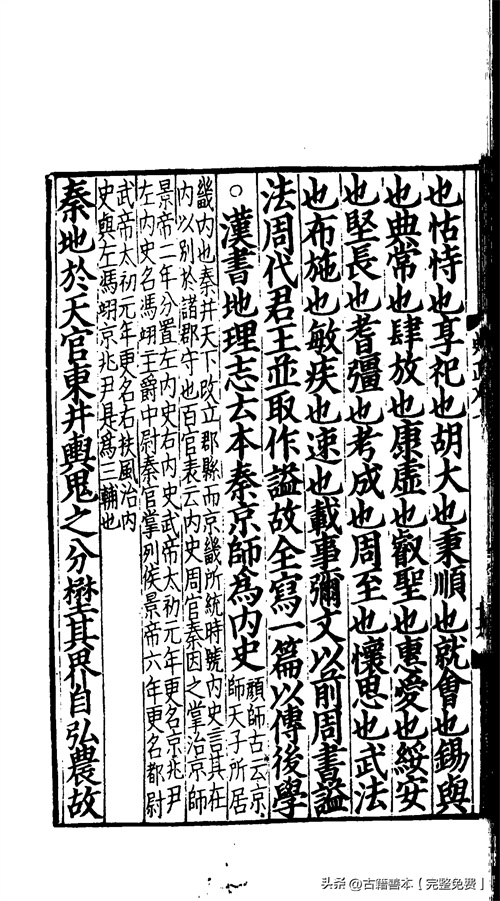 也怙恃也享祀也胡大也秉順也就會也錫與
也典常也肆放也康虛也叡聖也惠愛也綏安
也堅長也耆彊也考成也周至也懷思也武法
也布施也敏疾也速也載事彌文以前周書諡
法周代君王並取作諡故全寫一篇以傳後學
○漢書地理志云本秦京師爲內史
顏師古云京
師天子所居
畿內也秦并天下改立郡縣而京畿所統時號內史言其在
內以別於諸郡守也百官表云內史周官秦因之掌治京師
景帝二年分置左內史右內史武帝太初元年更名京兆尹
左內史名馮翊主爵中尉秦官掌列侯景帝六年更名都尉
武帝太初元年更名右扶風治內
史與左馮翊京兆尹是爲三輔也
秦地於天官東井輿鬼之分壄其界自弘農故
头条 @古籍善本【完整免费】